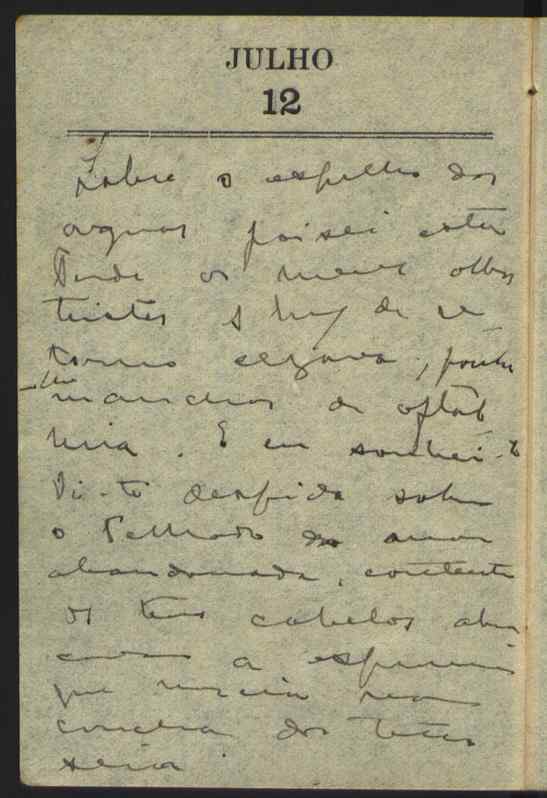 JULHO
12
Sobre o espelho das
aguas poisei esta
tarde os meus olhos
tristes A luz de se
torno cegava, punha
manchas de oftal
mia. E eu sonhei-te
Vi-te despida sobre
o telhado da
abandonada, contente
os teus cabelos
a espuma
que nascia na
concha dos teus
seios.